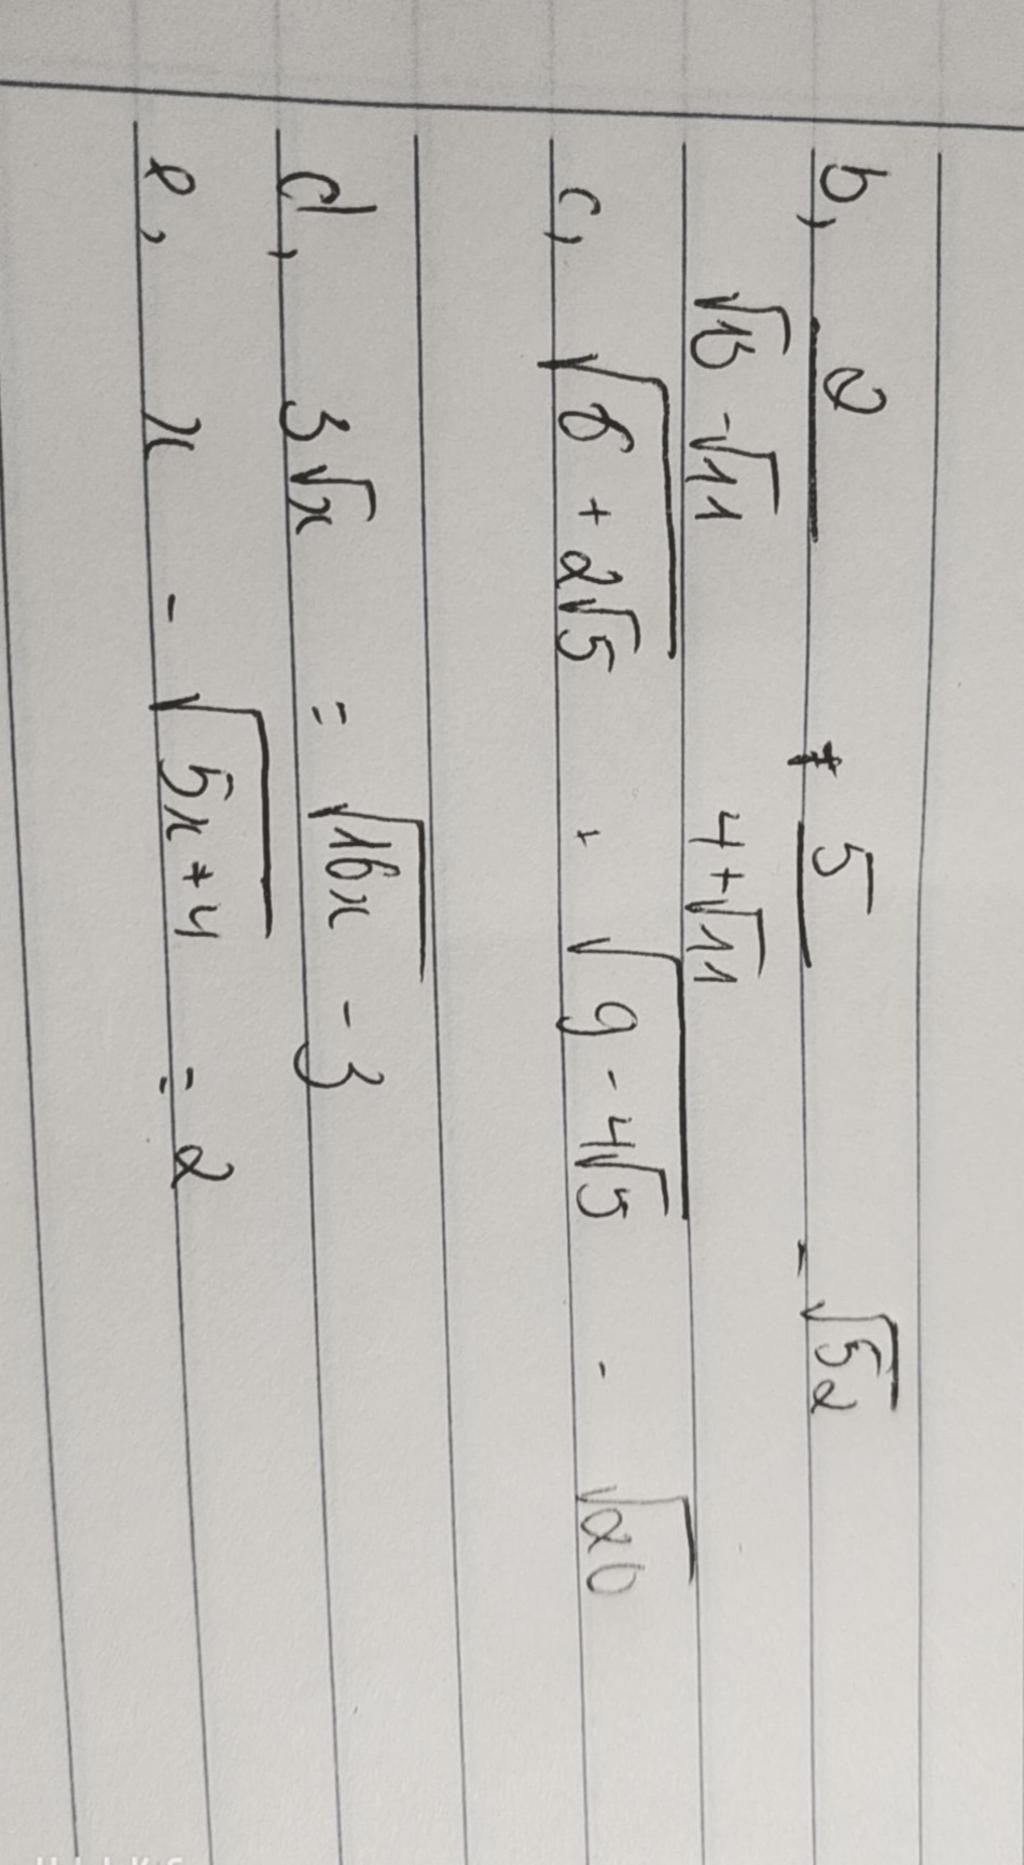 b, 2 + 5 - √52
√13 - √11 4 + √11
c, √6 + 2√5 + √9 - 4√5 - √20
d, 3√x = √16x - 3
e, x - √5x + 4 = 2